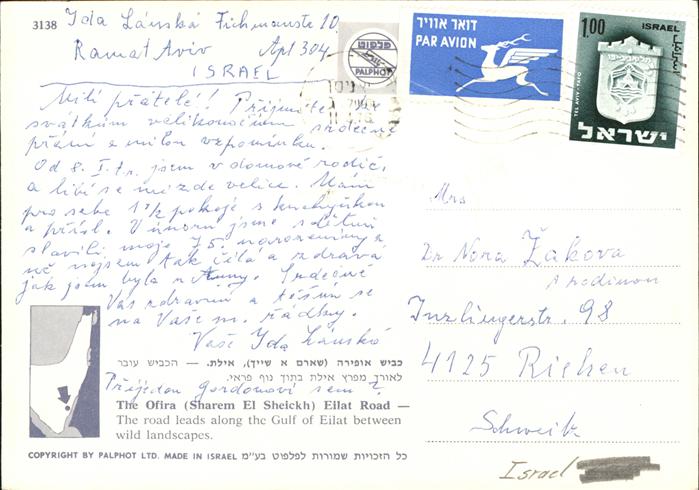 3138
Ida Lánská
Ramat Aviv Apt 304
ISRAEL
פלפוט
PALPHOT
דואר אוויר
PAR AVION
1.00 ISRAEL
TEL AVIV-YAFO
ישראל
Milí přátelé! Přijměte k
svátkům velikonočním srdečné
přání a milou vzpomínku.
Od 8. I. t.r. jsem v domově rodičů,
a líbí se mi zde velice. Mám
pro sebe 1 1/2 pokoje s kuchyňkou
a přísl. V únoru jsme s dětmi
slavili moje 75. narozeniny,
než nejsem tak čilá a zdravá
jak jsem byla Srdečně
Vás zdravím a těším se
na Vaše m. řádky.
Vaše Ida Lánská
Mrs
Dr Nora Žakova
a rodinou
Inzlingerstr. 98
4125 Riehen
Schweiz
כביש אופירה (שארם א שייך), אילת. — הכביש עובר
לאורך מפרץ אילת בתוך נוף פראי.
Přijedou gordonovi sem?
The Ofira (Sharem El Sheickh) Eilat Road —
The road leads along the Gulf of Eilat between
wild landscapes.
COPYRIGHT BY PALPHOT LTD. MADE IN ISRAEL כל הזכויות שמורות לפלפוט בע״מ
Israel